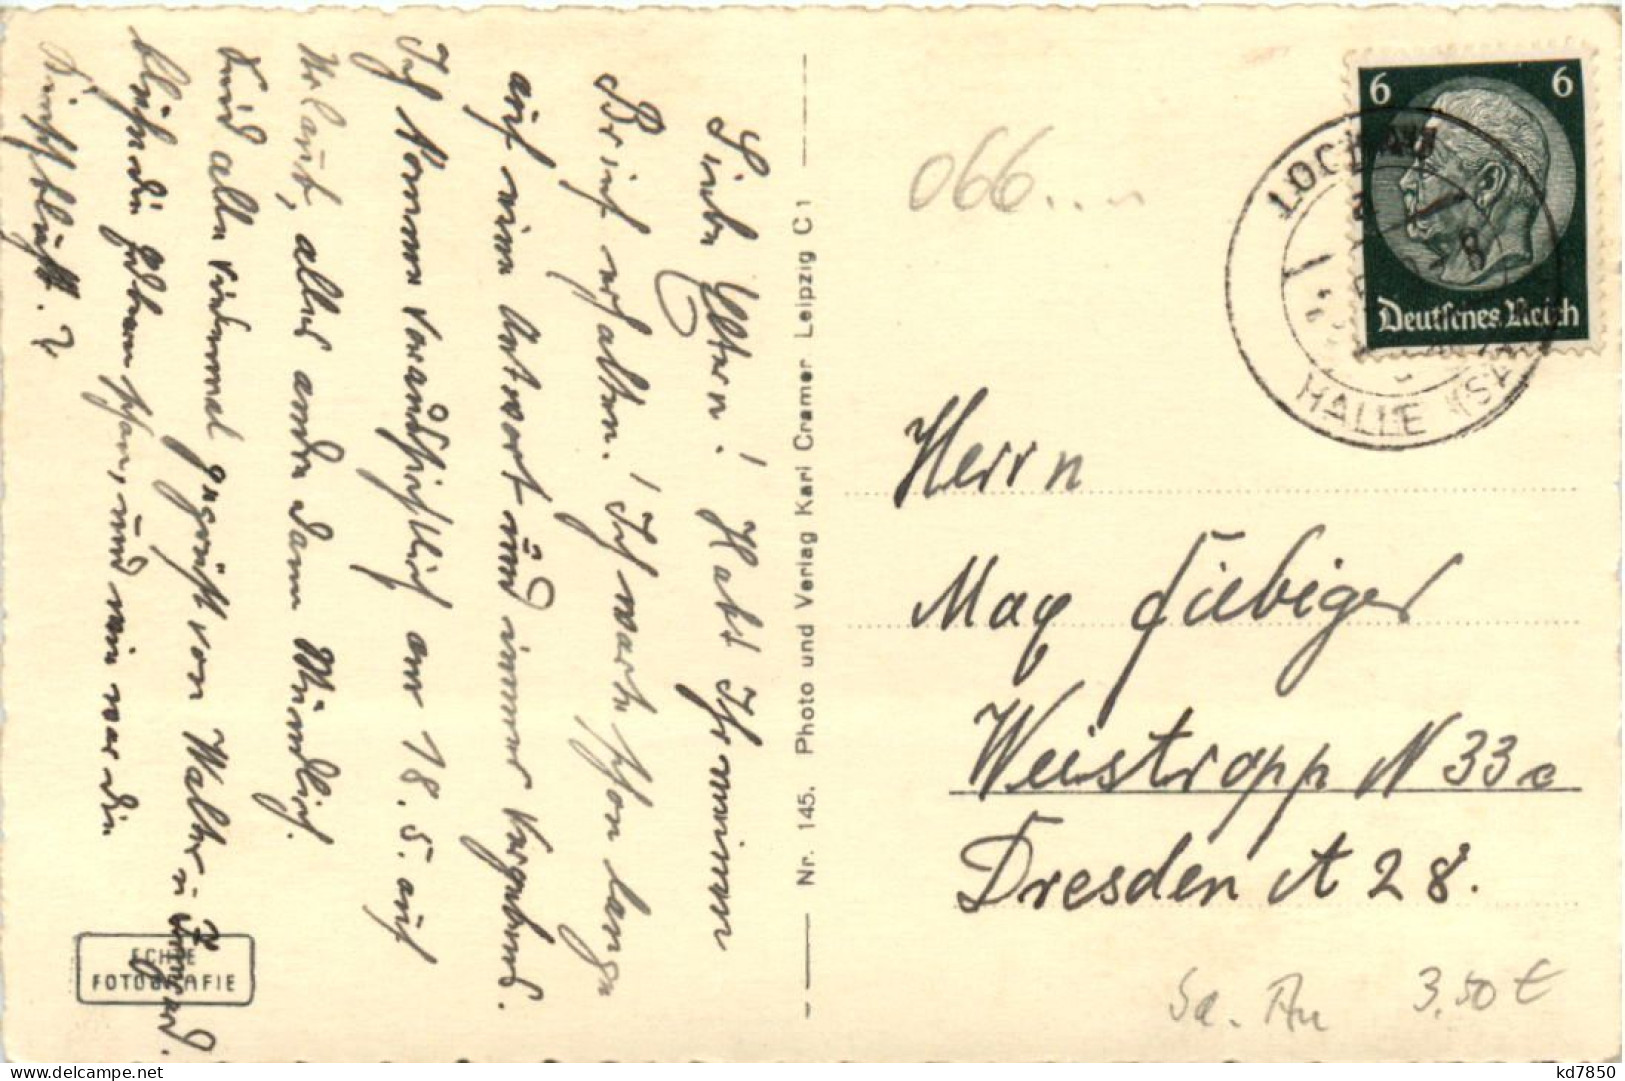 Liebe Eltern! Habt Ihr meinen
Brief erhalten. Ich warte schon lange
auf eine Antwort und immer vergebens.
Ich komme voraussichtlich am 18. 5. auf
Urlaub, alles andre dann Mündlich.
Seid alle vielmal gegrüßt von Walter
u. Irmgard.
Nr. 145. Photo und Verlag Karl Cramer Leipzig C 1
ECHTE
FOTOGRAFIE
066....
6 6
Deutsches Reich
LOCHAU
HALLE (SA
Herrn
Max Fiebiger
Weistropp N 33c
Dresden A 28.
Sa. Au 3,50 €
kd7850